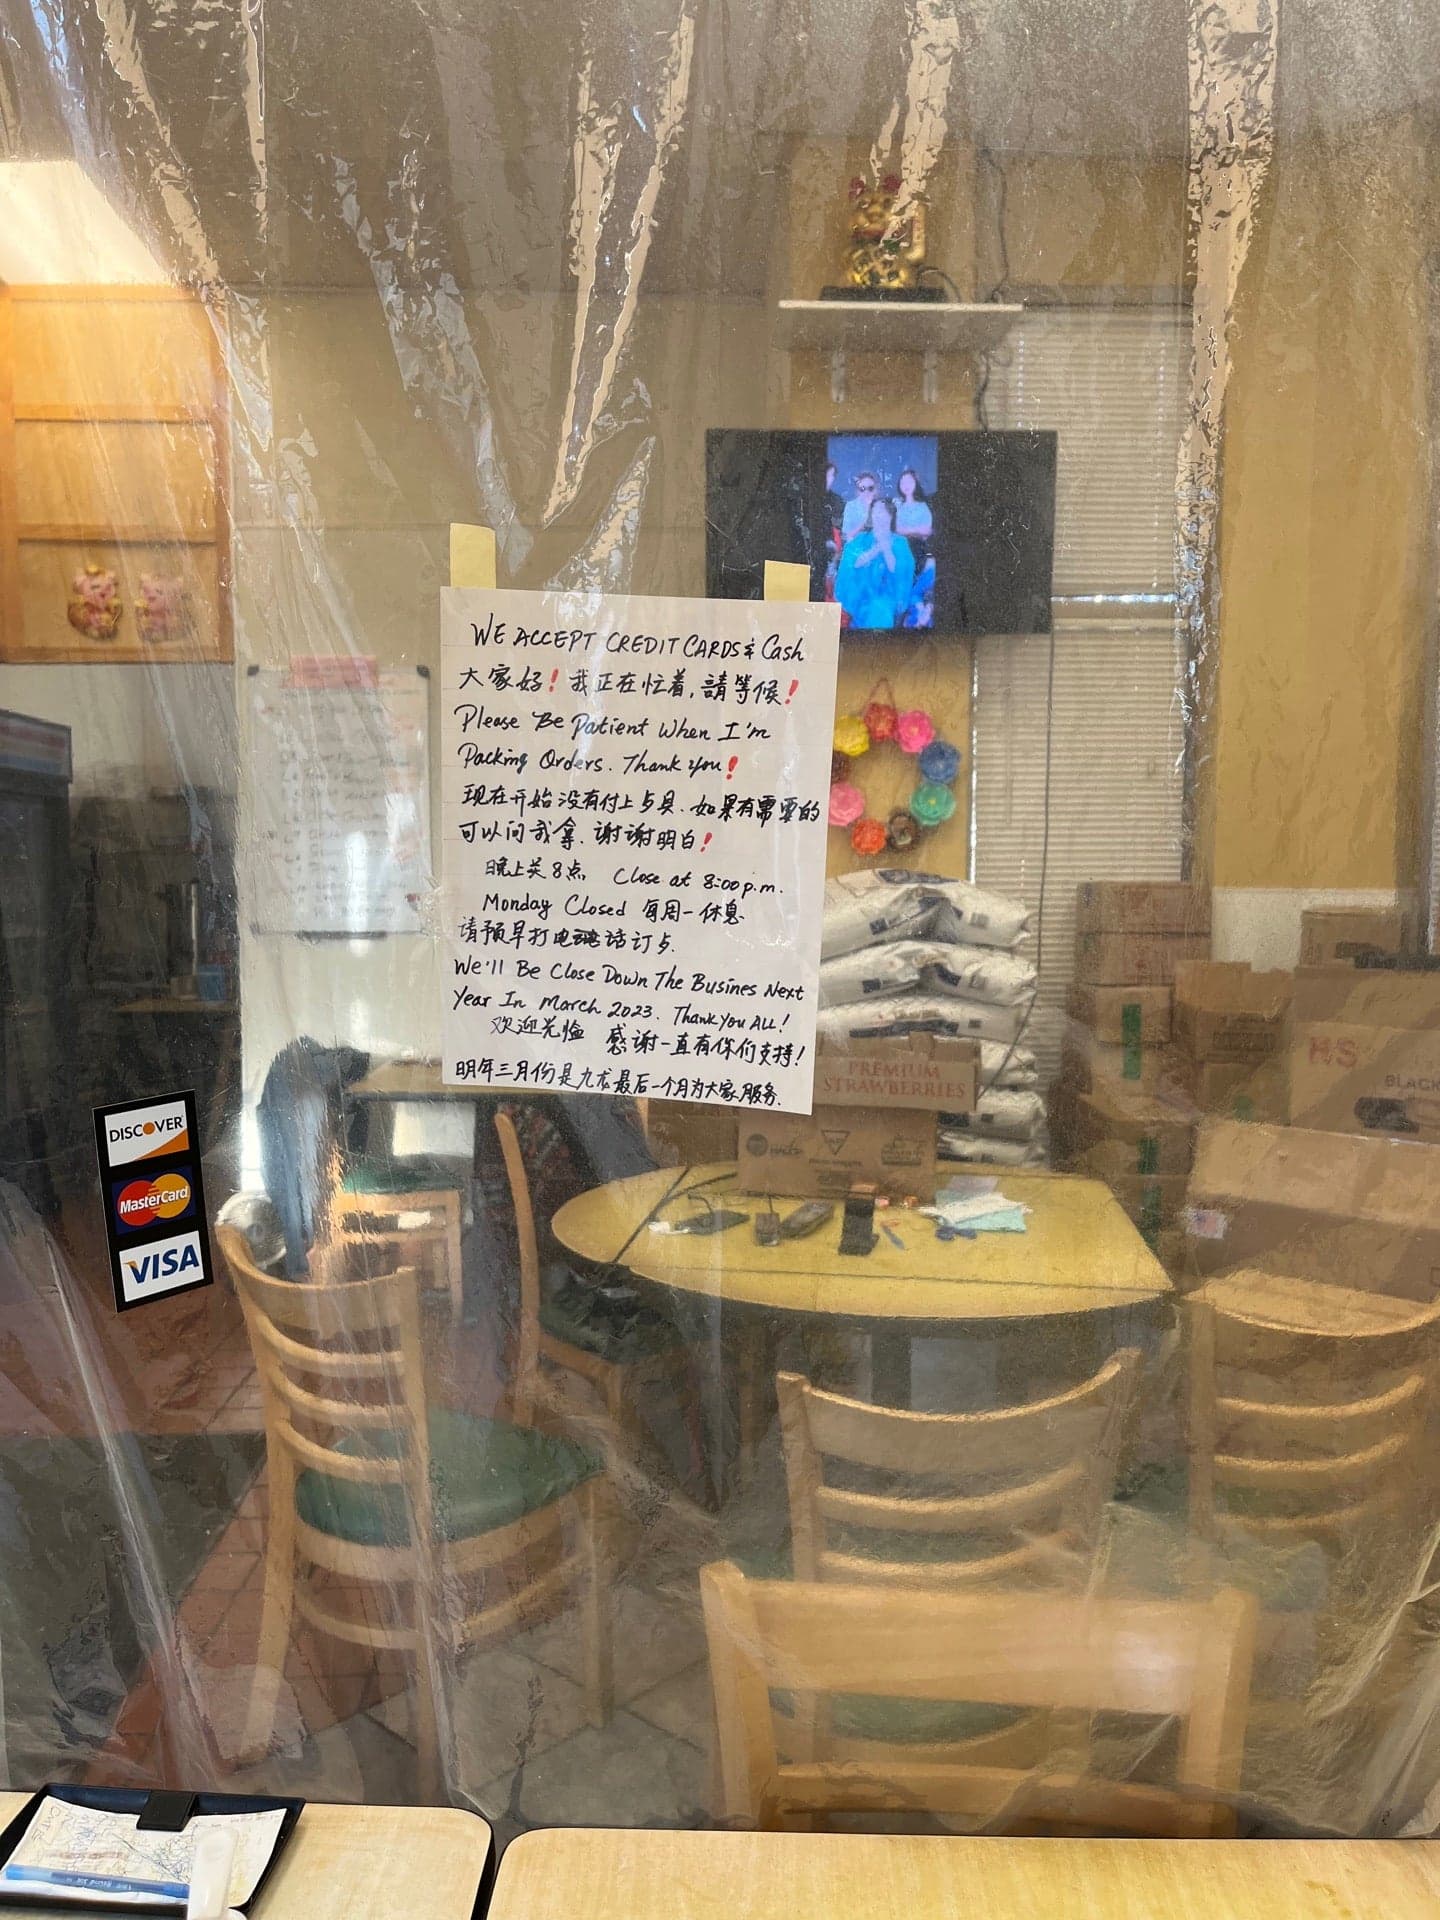 WE ACCEPT CREDIT CARDS & Cash
大家好! 我正在忙着,請等候!
Please Be Patient When I'm
Packing Orders. Thank you!
现在开始没有付上歺具. 如果有需要的
可以问我拿. 谢谢明白!
晚上关8点 Close at 8:00 p.m.
Monday Closed 每周一休息
请预早打电话订歺.
We'll Be Close Down The Busines Next
Year In March 2023. Thank You ALL!
欢迎光临 感谢一直有你们支持!
明年三月份是九龙最后一个月为大家服务.
PREMIUM
STRAWBERRIES
HS
BLACK
DISCOVER
MasterCard
VISA